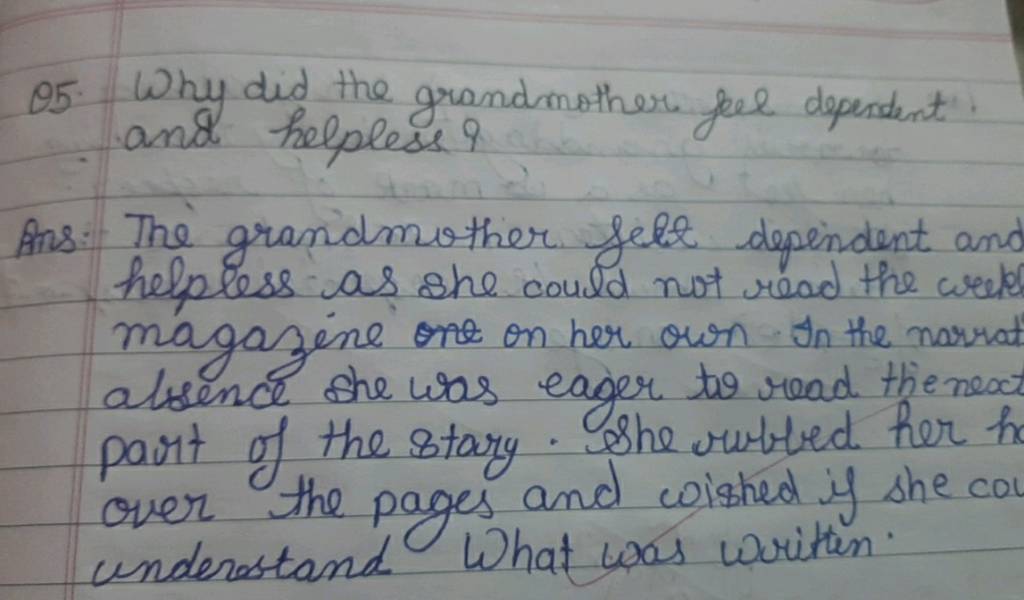 Q5. Why did the grandmother feel dependent
and helpless?
Ans:- The grandmother felt dependent and
helpless as she could not read the weekl
magazine one on her own. In the narrat
absence she was eager to read the next
part of the stary. She rubbed her ha
over the pages and wished if she cou
understand What was written.